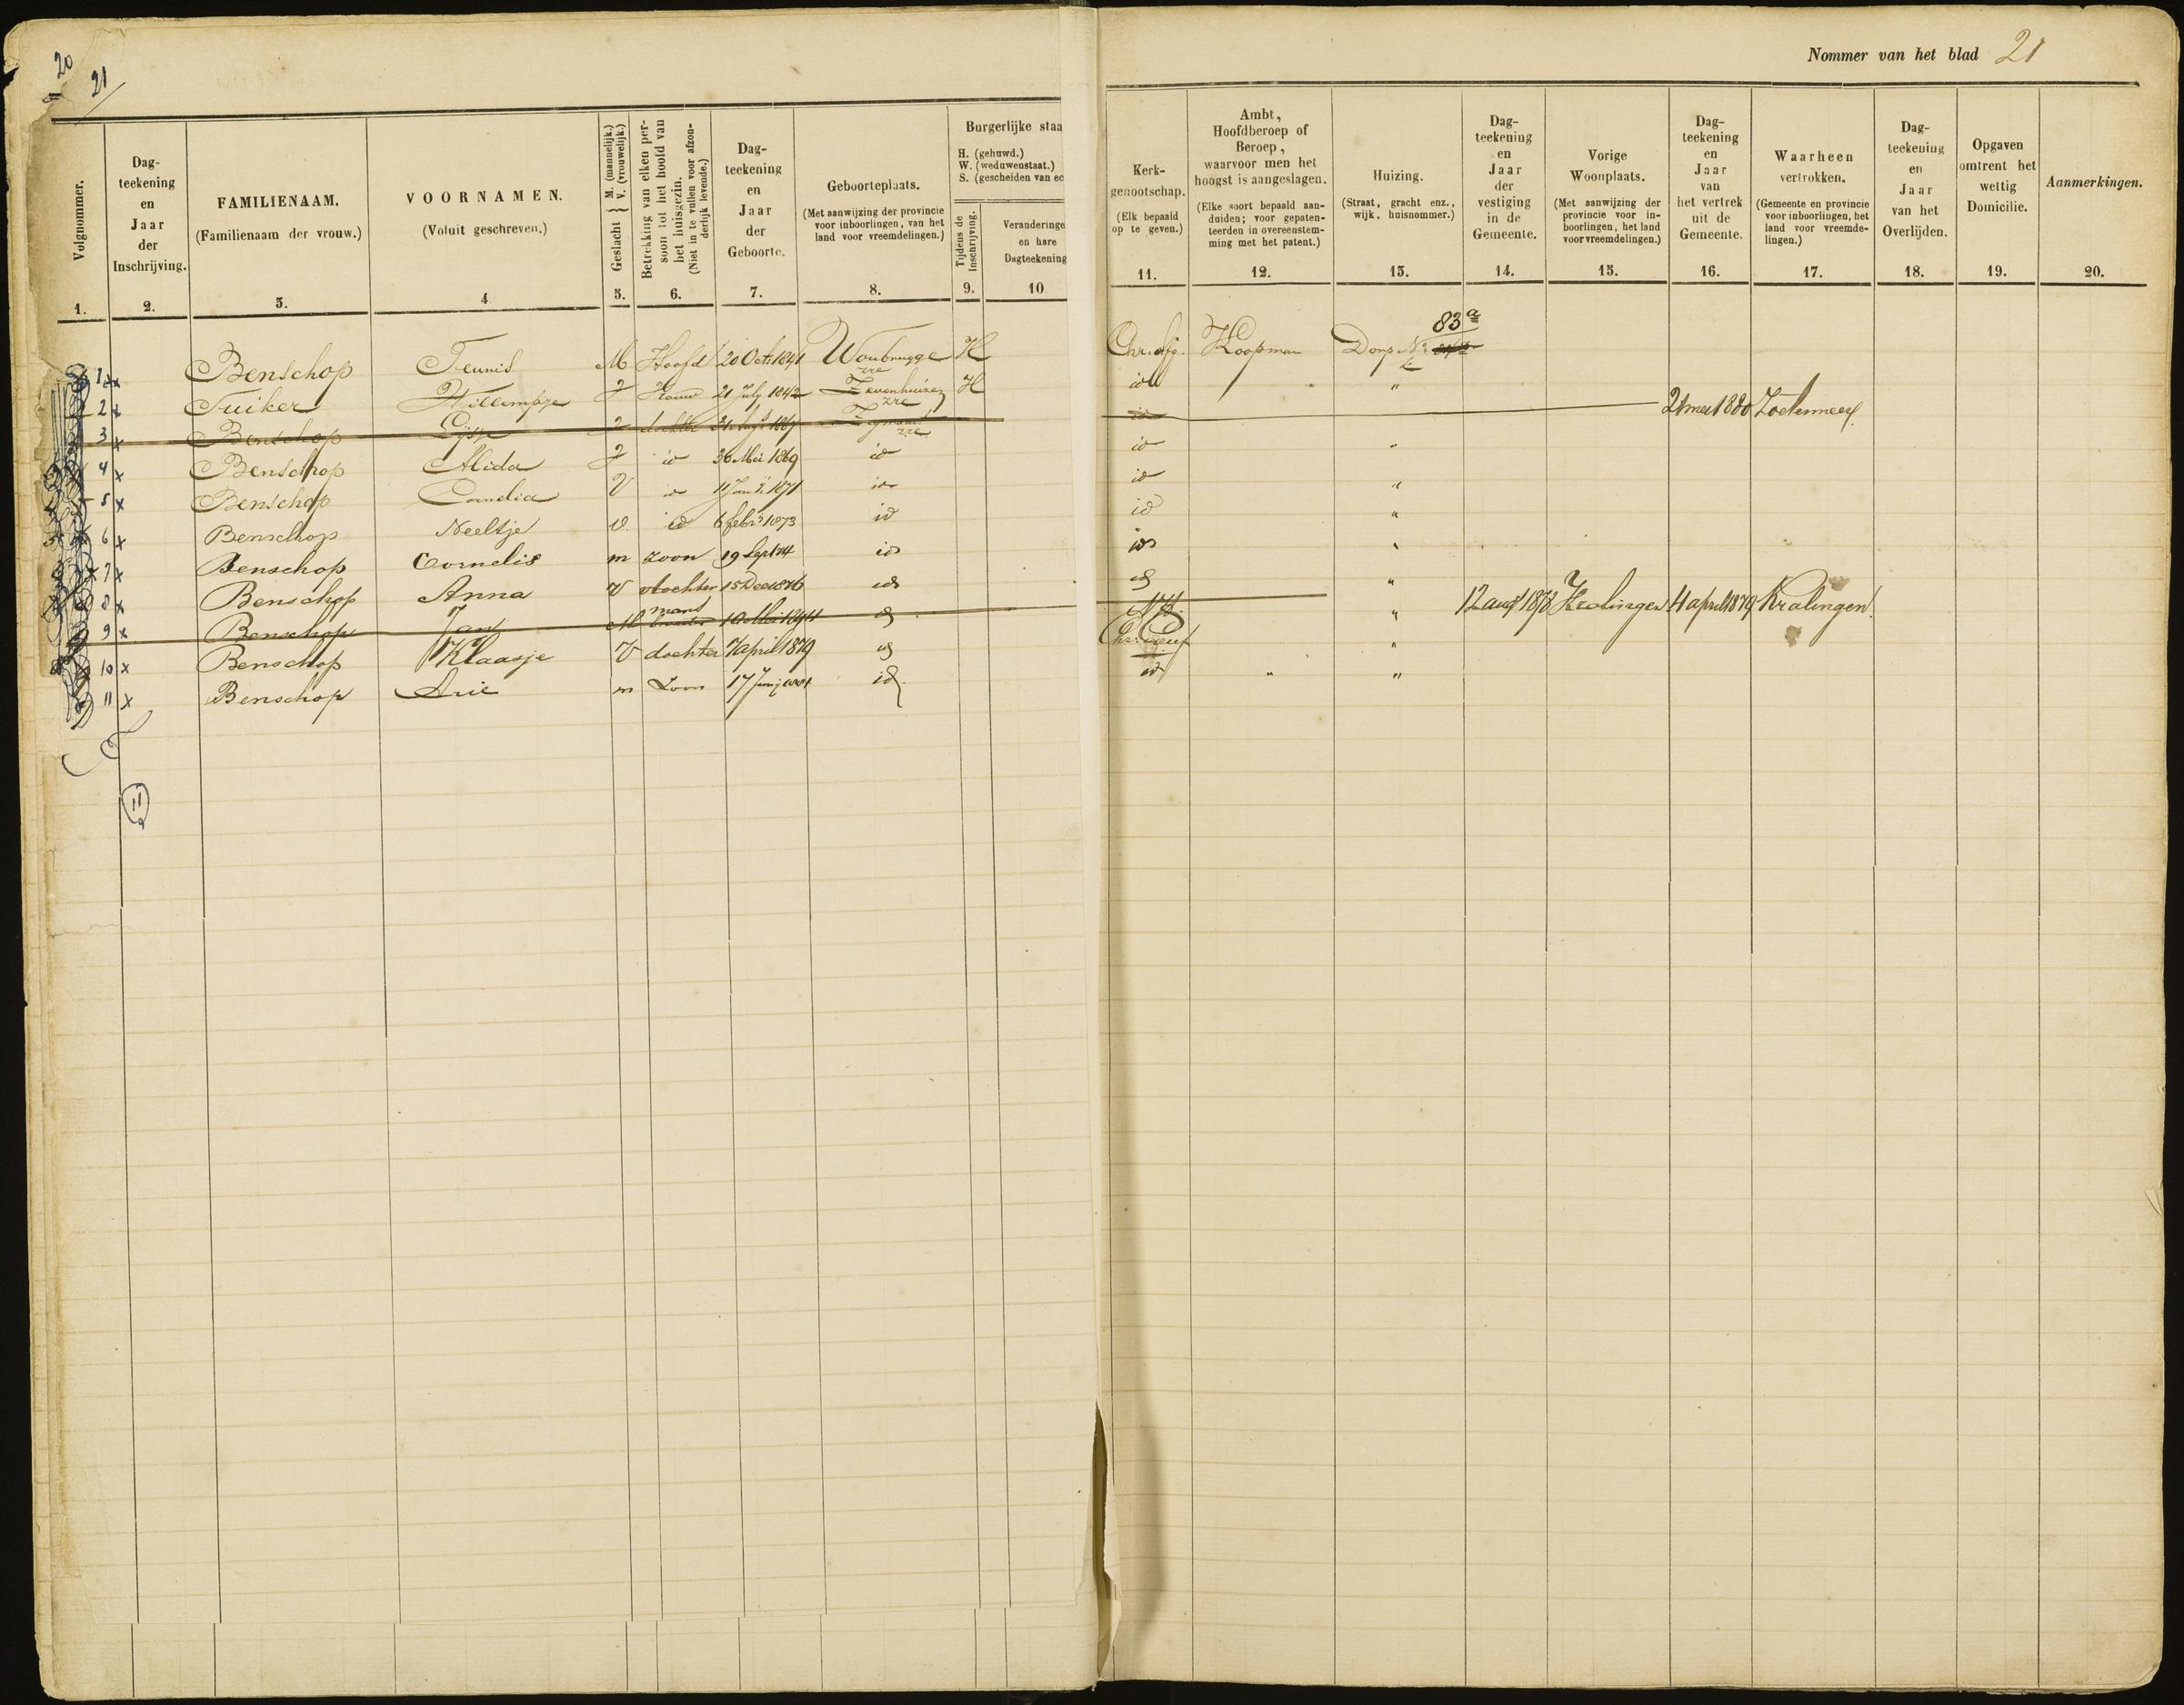 20
21
Nommer van het blad 21
Volgnommer.
1.
Dag-
teekening
en
Jaar
der
Inschrijving.
2.
FAMILIENAAM.
(Familienaam der vrouw.)
3.
VOORNAMEN.
(Voluit geschreven.)
4.
Geslacht { M. (mannelijk.) V. (vrouwelijk.)
5.
Betrekking van elken per-
soon tot het hoofd van
het huisgezin.
(Niet in te vullen voor afzon-
derlijk levende.)
6.
Dag-
teekening
en
Jaar
der
Geboorte.
7.
Geboorteplaats.
(Met aanwijzing der provincie
voor inboorlingen, van het
land voor vreemdelingen.)
8.
Burgerlijke staa
H. (gehuwd.)
W. (weduwenstaat.)
S. (gescheiden van ec
Tijdens de
Inschrijving.
9.
Veranderinge
en hare
Dagteekening
10
Kerk-
genootschap.
(Elk bepaald
op te geven.)
11.
Ambt,
Hoofdberoep of
Beroep,
waarvoor men het
hoogst is aangeslagen.
(Elke soort bepaald aan-
duiden; voor gepaten-
teerden in overeenstem-
ming met het patent.)
12.
Huizing.
(Straat, gracht enz.,
wijk, huisnommer.)
13.
Dag-
teekening
en
Jaar
der
vestiging
in de
Gemeente.
14.
Vorige
Woonplaats.
(Met aanwijzing der
provincie voor in-
boorlingen, het land
voor vreemdelingen.)
15.
Dag-
teekening
en
Jaar
van
het vertrek
uit de
Gemeente.
16.
Waarheen
vertrokken.
(Gemeente en provincie
voor inboorlingen, het
land voor vreemde-
lingen.)
17.
Dag-
teekening
en
Jaar
van het
Overlijden.
18.
Opgaven
omtrent het
wettig
Domicilie.
19.
Aanmerkingen.
20.
83a
1 x Benschop Teunis M Hoofd 20 Oct 1841 Woubrugge H Chr. Afg. Koopman Dorp No
2 x Tuiker Willempje 21 July 1842 Zevenhuizen H id "
3 x Benschop dochter id 21 mei 1880 Zoetermeer
4 x Benschop Alida id 30 Mei 1869 id id "
5 x Benschop Cornelia V id 11 1871 id id "
6 x Benschop Neeltje V id 6 feb 1873 id id "
7 x Benschop Cornelis m zoon 19 Sept 74 id id "
8 x Benschop Anna V dochter 15 Dec 1876 id id "
9 x Benschop Jan M 10 Mei 1844 id N H " 12 aug 1878 4 april 1879 Kralingen
10 x Benschop Klaasje V dochter 7 april 1879 id Chr. "
11 x Benschop Arie m Zoon 17 Junij 1881 id id " "
11